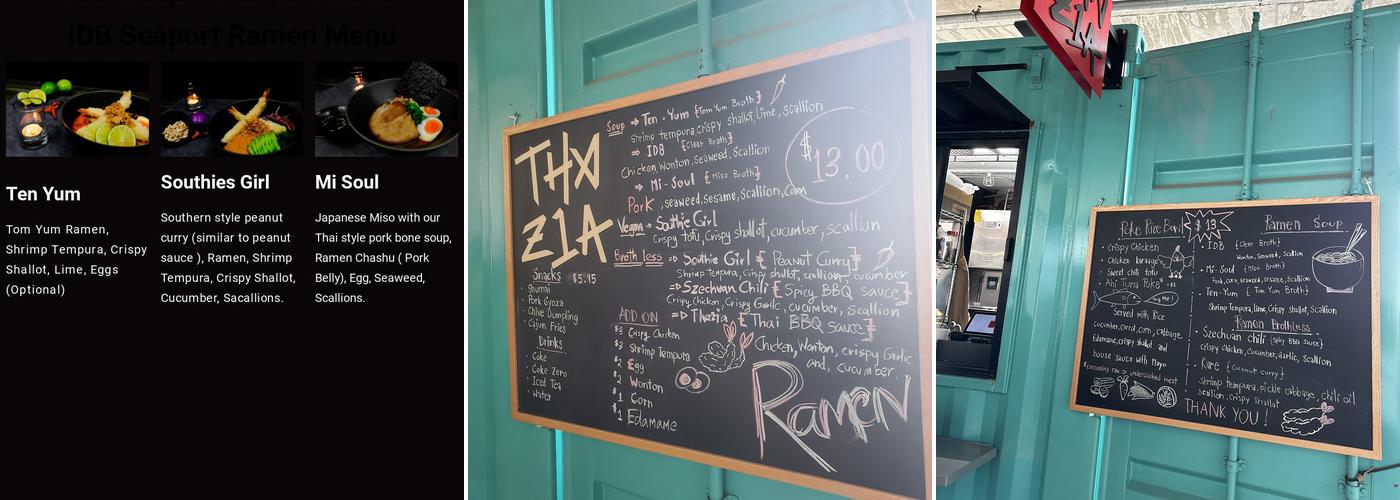 IDB Seaport Ramen Menu
Ten Yum
Tom Yum Ramen,
Shrimp Tempura, Crispy
Shallot, Lime, Eggs
(Optional)
Southies Girl
Southern style peanut
curry (similar to peanut
sauce ), Ramen, Shrimp
Tempura, Crispy Shallot,
Cucumber, Sacallions.
Mi Soul
Japanese Miso with our
Thai style pork bone soup,
Ramen Chashu ( Pork
Belly), Egg, Seaweed,
Scallions.
THX
ZIA
Snacks $5.95
Shumai
Pork Gyoza
Chive Dumpling
Cajun Fries
Drinks
Coke
Coke Zero
Iced Tea
Water
Soup => Ten-Yum {Tom Yum Broth}
Shrimp tempura, Crispy shallot, lime, scallion
=> IDB {Clear Broth}
Chicken, Wonton, Seaweed, Scallion
=> Mi-Soul {Miso Broth}
Pork, seaweed, sesame, Scallion, Corn
$13.00
Vegan => Southie Girl
Crispy tofu, Crispy shallot, cucumber, scallion
Broth less => Southie Girl {Peanut Curry}
Shrimp tempura, Crispy shallot, scallion, cucumber
=> Szechuan Chili {Spicy BBQ sauce}
Crispy chicken, Crispy Garlic, cucumber, Scallion
=> Thazia {Thai BBQ sauce}
Chicken, Wonton, crispy Garlic
and, cucumber.
ADD ON
$3 Crispy Chicken
$3 Shrimp Tempura
$2 Egg
$2 Wonton
$1 Corn
$1 Edamame
RAMEN
ZIA
Poke Rice Bowl $13
Crispy Chicken
Chicken karaage
Sweet chili tofu
Ahi Tuna Poke*
Try me!
Served with Rice
cucumber, carrot, corn, cabbage,
Edamame, crispy shallot and
house sauce with Mayo
*consuming raw or undercooked meat
Ramen Soup.
IDB {Clear Broth}
Wonton, Seaweed, Scallion
Mi-Soul {Miso Broth}
Pork, corn, seaweed, sesame, Scallion
Ten-Yum {Tom Yum Broth}
Shrimp tempura, Lime, Crispy shallot, Scallion
Ramen Brothless.
Szechuan chili {Spicy BBQ Sauce}
crispy chicken, Cucumber, Garlic, Scallion
Kare {Coconut curry}
shrimp tempura, pickle cabbage, chili oil
scallion, crispy shallot
THANK YOU!